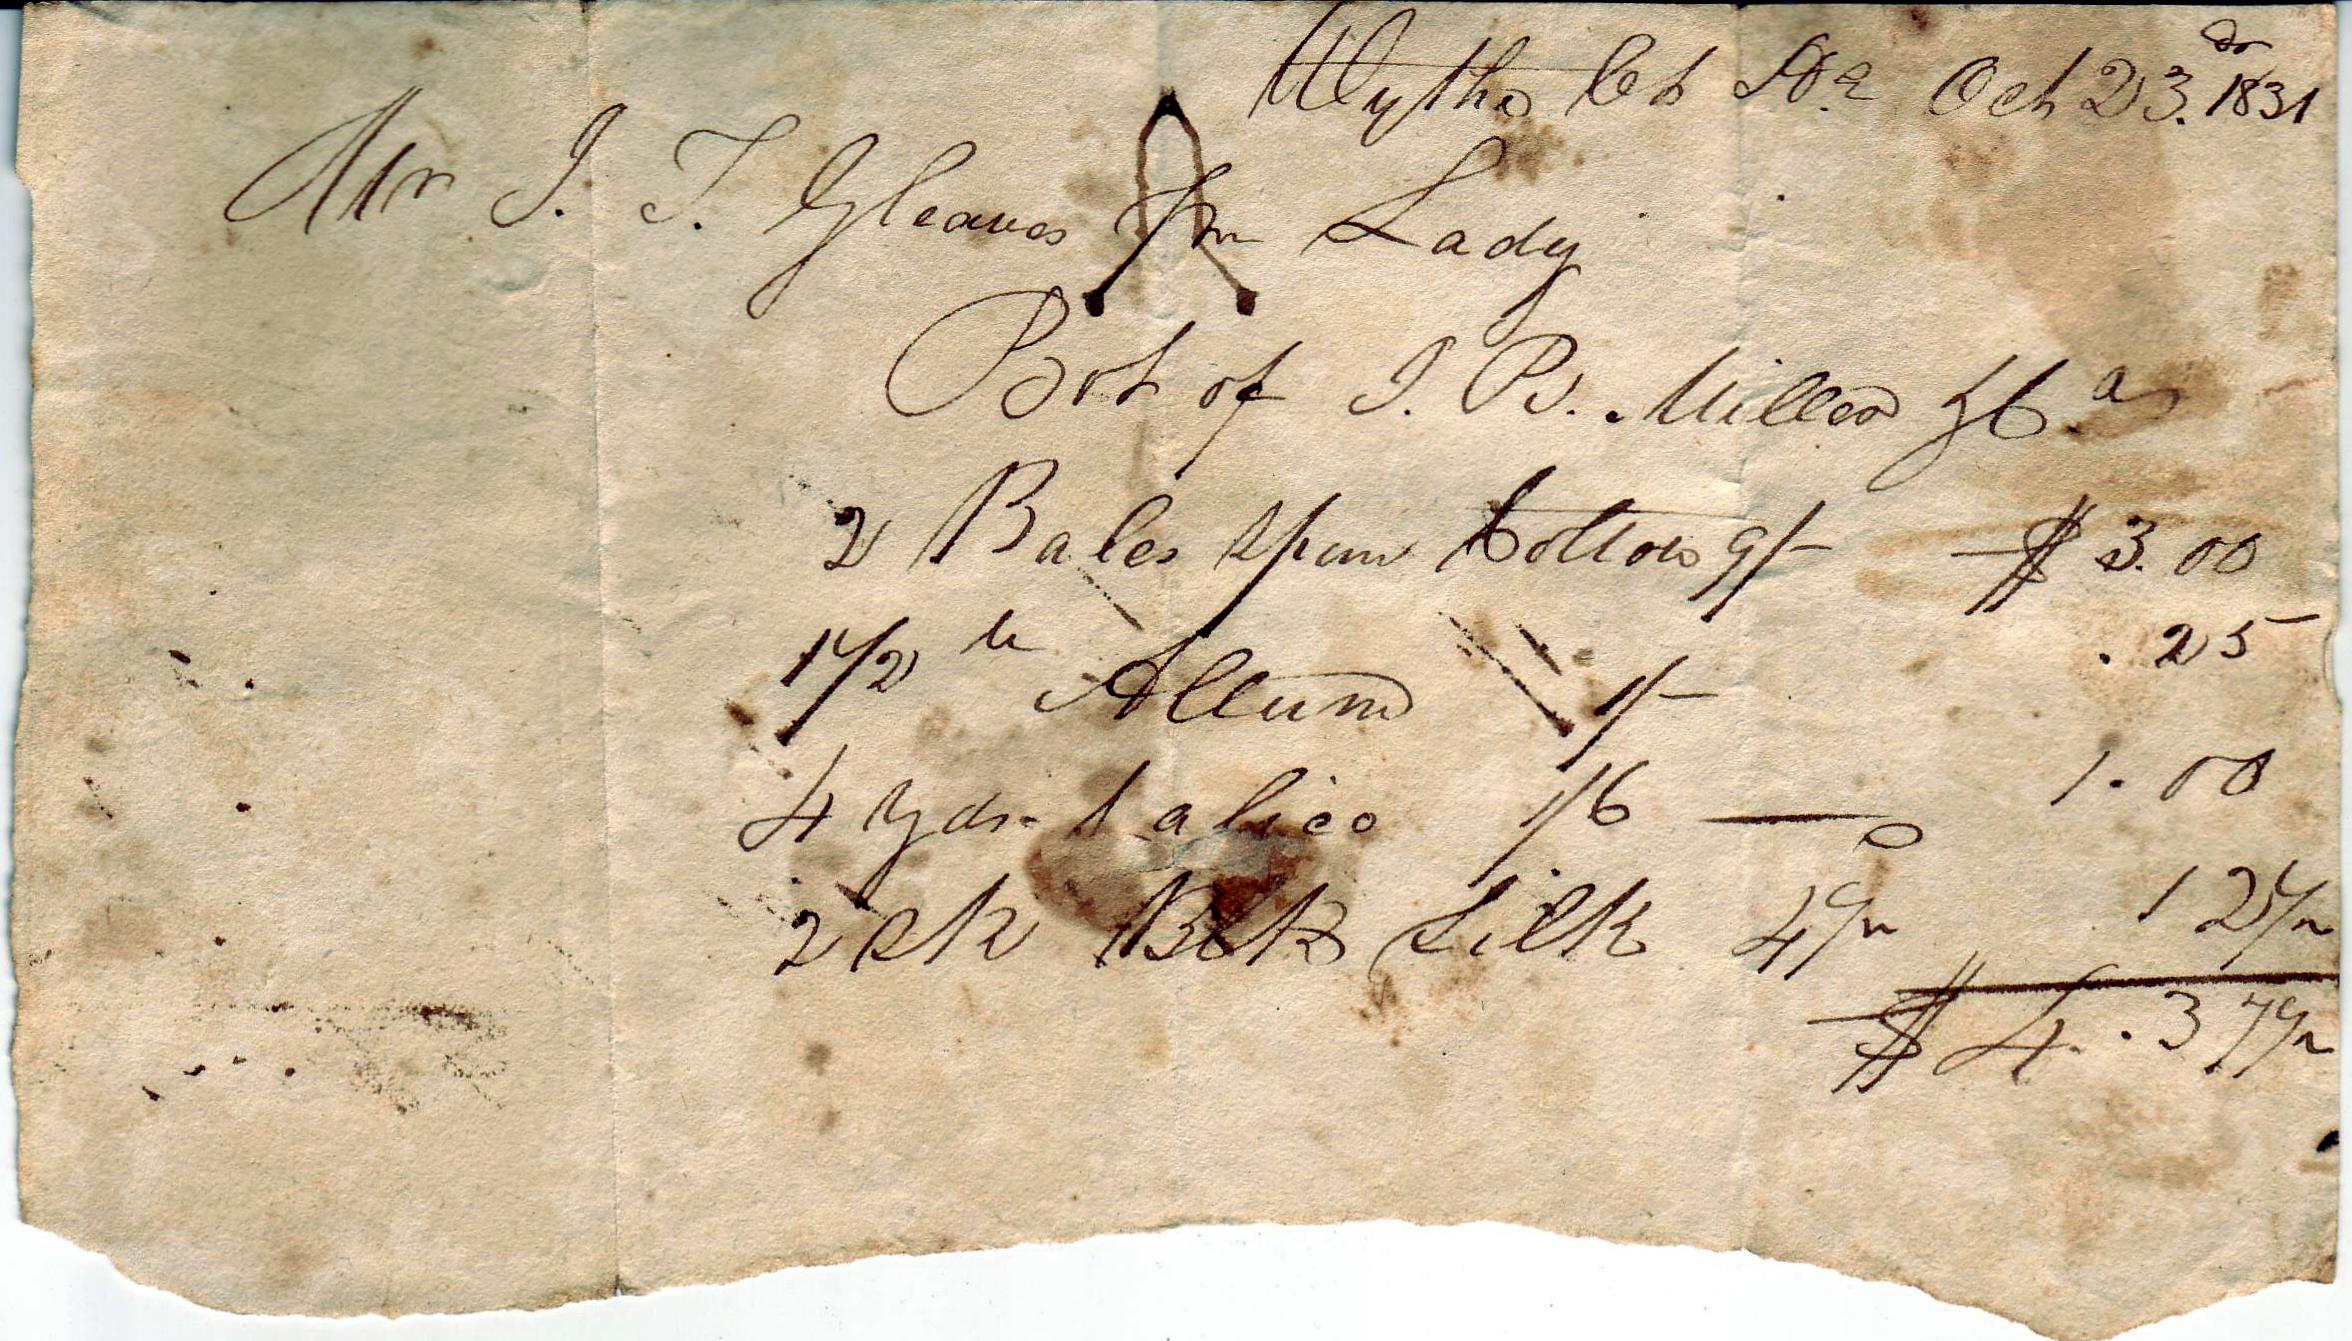 Wythe Ct Hs Oct 23. 1831
Mr J. T. Gleaves Pr Lady
Bot of J. B. Miller
2 Bales Spun Cotton 9/- $ 3.00
1 1/2 lb Allum 1/- . 25
4 Yds. Calico 1/6 1. 00
2 sk Blk Silk 4 1/2 12 1/2
$ 4. . 37 1/2